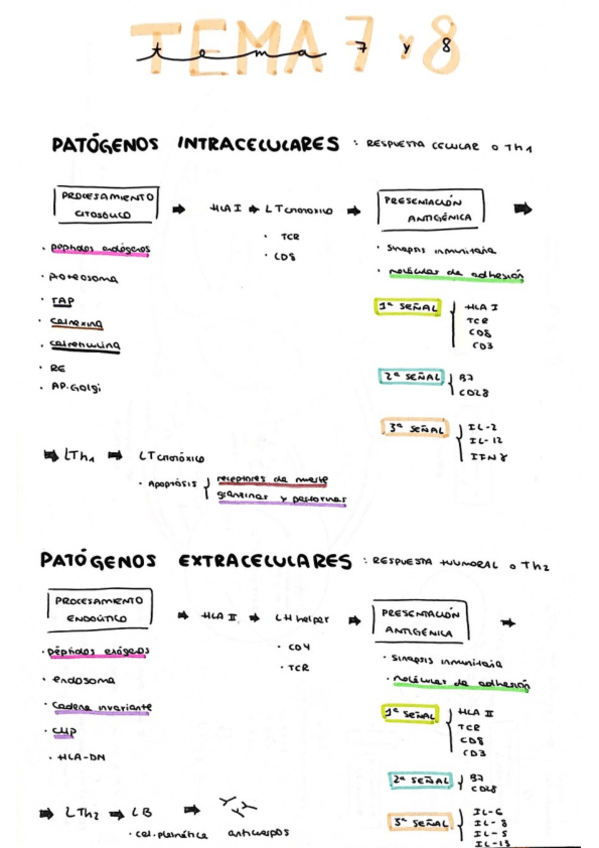 TEMA 7 y 8
tema
PATÓGENOS INTRACELULARES : RESPUESTA CELULAR O Th1
PROCESAMIENTO
CITOSÓLICO
➡ HLA I ➡ LT citotóxico ➡
PRESENTACIÓN
ANTIGÉNICA
➡
· péptidos endógenos
· proteosoma
· TAP
· calnexina
· calreticulina
· RE
· AP. Golgi
· TCR
· CD8
· sinapsis inmunitaria
· moléculas de adhesión
1ª SEÑAL { HLA I
TCR
CD8
CD3
2ª SEÑAL { B7
CD28
3ª SEÑAL { IL-2
IL-12
IFNγ
➡ LTh1 ➡ LT citotóxico
· Apoptosis { receptores de muerte
granzimas y perforinas
PATÓGENOS EXTRACELULARES : RESPUESTA HUMORAL O Th2
PROCESAMIENTO
ENDOCÍTICO
➡ HLA II ➡ LH helper ➡
PRESENTACIÓN
ANTIGÉNICA
➡
· péptidos exógenos
· endosoma
· cadena invariante
· CLIP
· HLA-DM
· CD4
· TCR
· sinapsis inmunitaria
· moléculas de adhesión
1ª SEÑAL { HLA II
TCR
CD8
CD3
2ª SEÑAL { B7
CD28
3ª SEÑAL { IL-6
IL-5
IL-13
➡ LTh2 ➡ LB ➡
· cel. plasmática anticuerpos